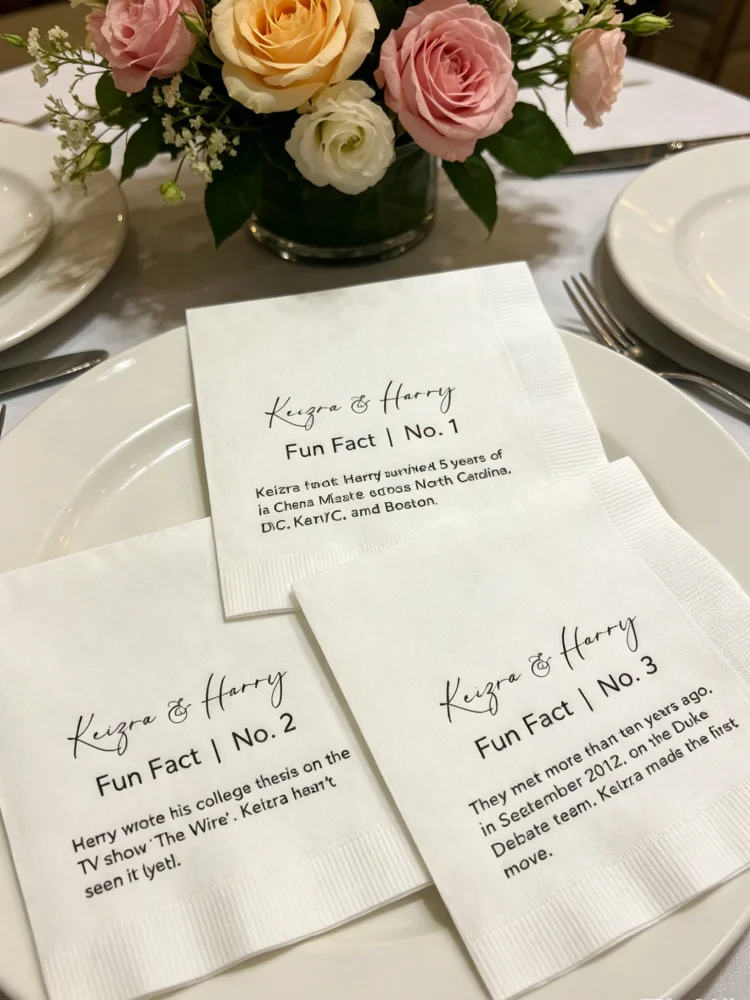 Keizra & Harry
Fun Fact | No. 1
Keizra Harry 5 years of
across North Carolina,
and Boston.
Keizra & Harry
Fun Fact | No. 2
Herry wrote his college thesis on the
TV show 'The Wire'. Keizra
seen it (yet).
Keizra & Harry
Fun Fact | No. 3
They met more than ten years ago,
in Seetember 2012, on the Duke
Debate team. Keizra made the first
move.